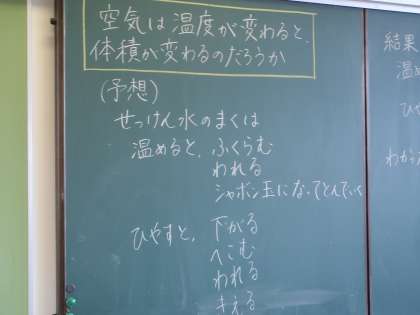 空気は温度が変わると、
体積が変わるのだろうか
(予想)
せっけん水のまくは
温めると、ふくらむ
われる
シャボン玉になってとんでいく
ひやすと、下がる
へこむ
われる
きえる
結果
温め
ひや
わかっ